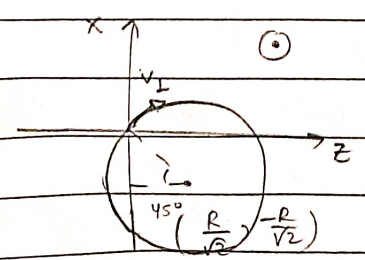 X
V⊥
Z
45°
(R/√2, -R/√2)